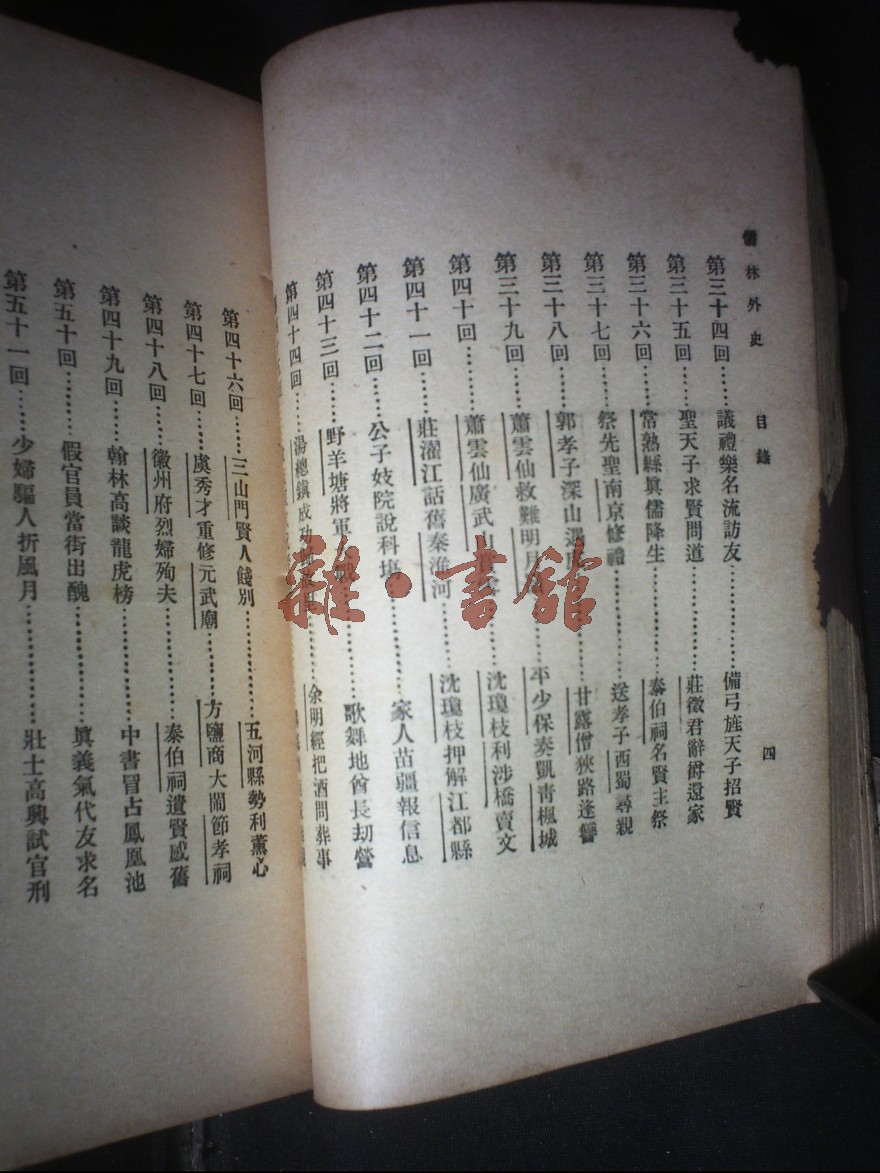 儒林外史　目錄　四
第三十四回……議禮樂名流訪友……備弓旌天子招賢
第三十五回……聖天子求賢問道……莊徵君辭爵還家
第三十六回……常熟縣眞儒降生……泰伯祠名賢主祭
第三十七回……祭先聖南京修禮……送孝子西蜀尋親
第三十八回……郭孝子深山遇……甘露僧狹路逢讐
第三十九回……蕭雲仙救難明月……平少保奏凱靑楓城
第四十回……蕭雲仙廣武山……沈瓊枝利涉橋賣文
第四十一回……莊濯江話舊秦淮河……沈瓊枝押解江都縣
第四十二回……公子妓院說科場……家人苗疆報信息
第四十三回……野羊塘將軍大……歌舞地酋長刧營
第四十四回……湯總鎭成功……余明經把酒問葬事
第四十六回……三山門賢人餞別……五河縣勢利薰心
第四十七回……虞秀才重修元武廟……方鹽商大鬧節孝祠
第四十八回……徽州府烈婦殉夫……泰伯祠遺賢感舊
第四十九回……翰林高談龍虎榜……中書冒占鳳凰池
第五十回……假官員當街出醜……眞義氣代友求名
第五十一回……少婦騙人折風月……壯士高興試官刑
雜·書館